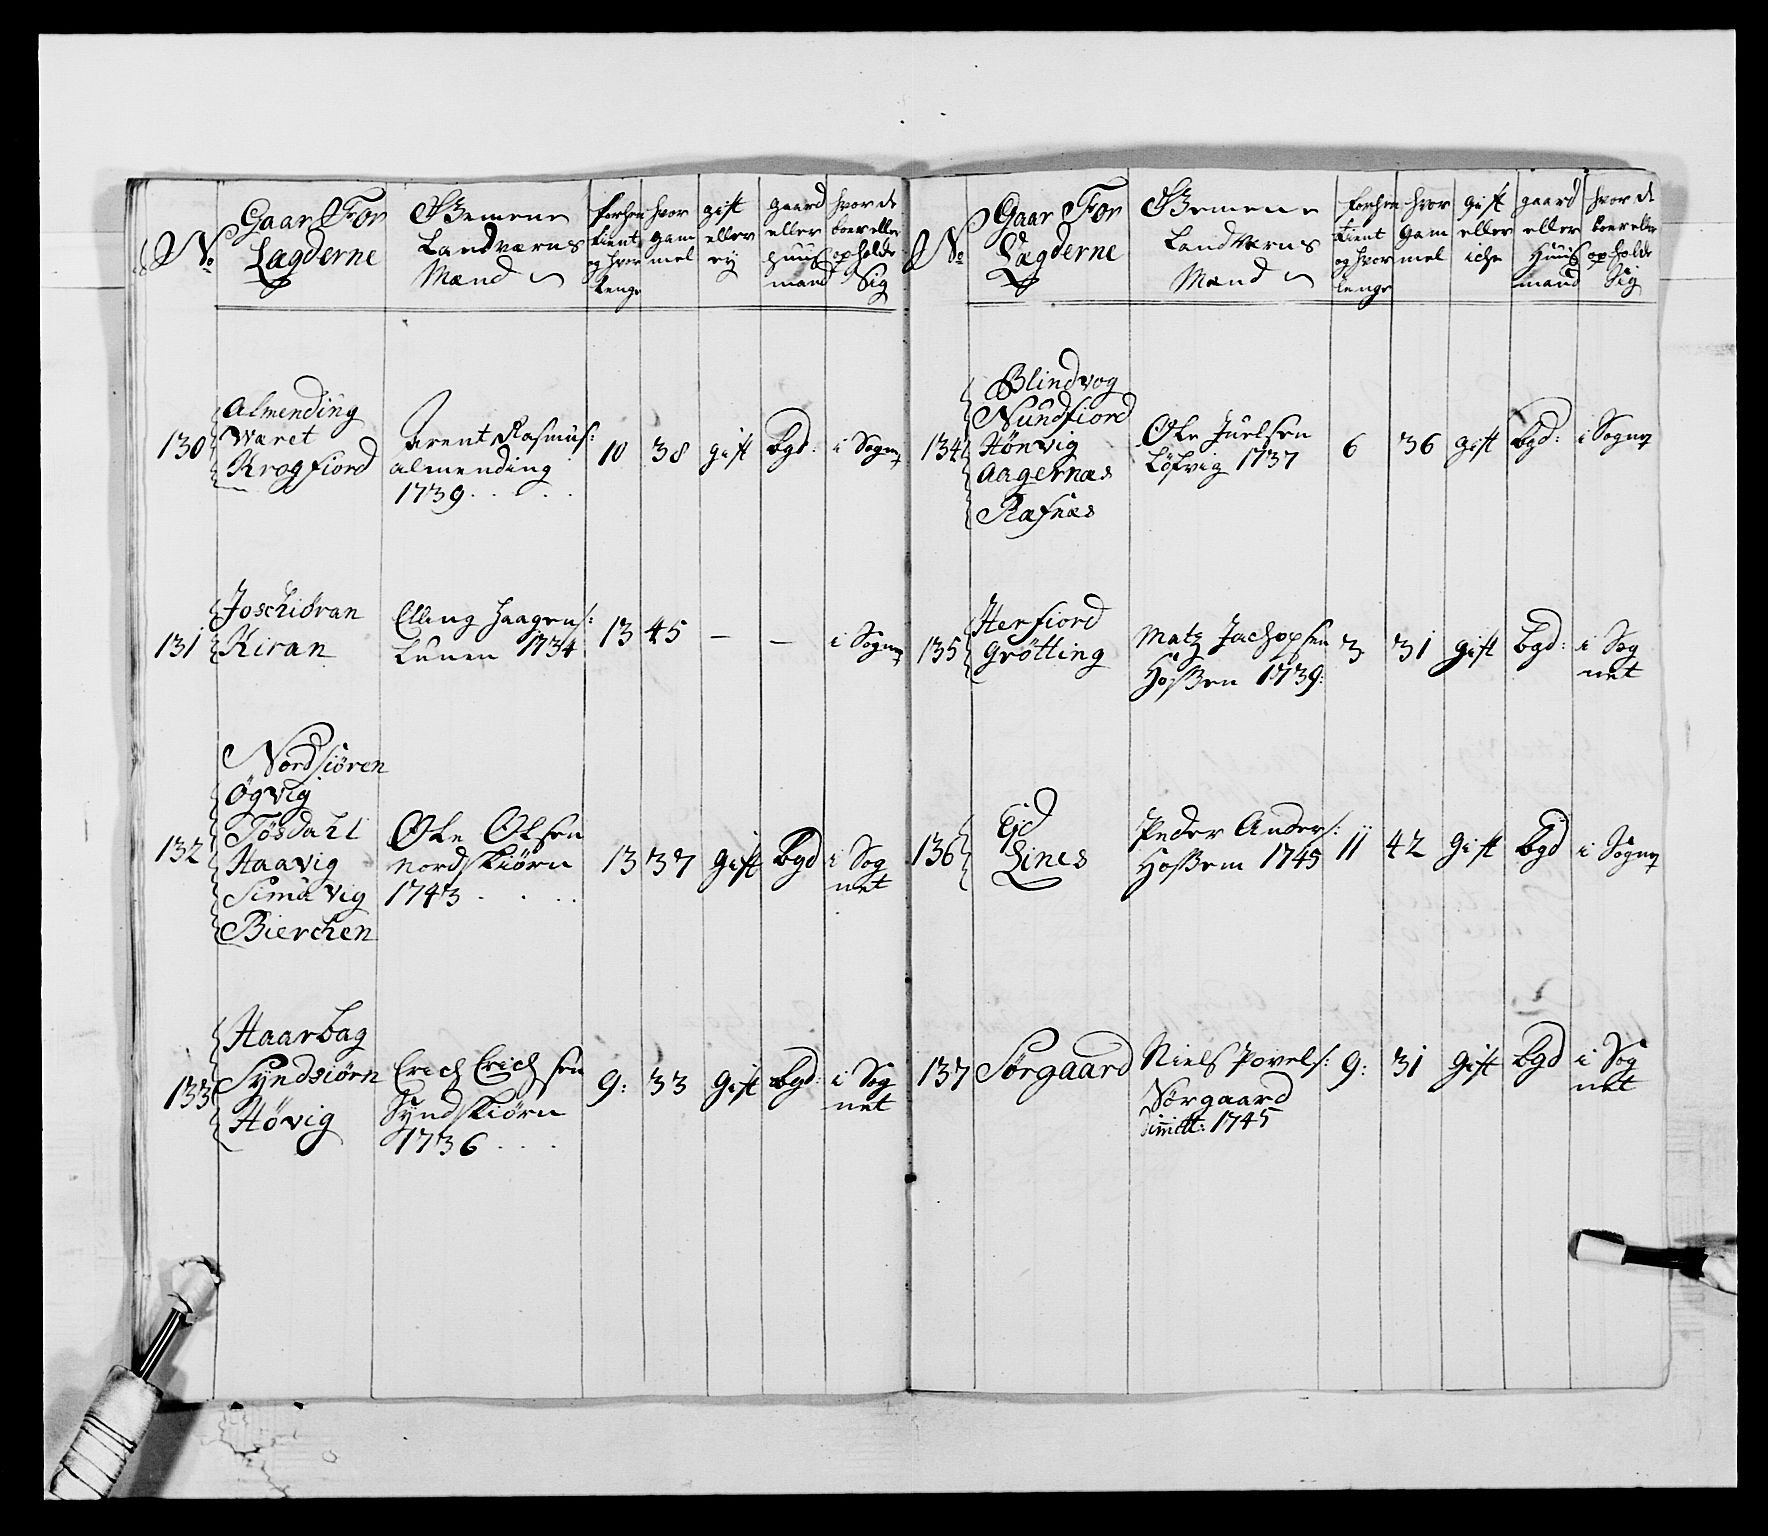 No
Gaar For
Lagderne
Gemene
Landværns
Mænd
forhen
tient
og hvor
lenge
hvor
gam
mel
gift
eller
ey
gaard
eller
huus
mand
hvor de
boer eller
opholde
Sig
130
Almending
Wæret
Krogfiord
Arent Rasmus:
almending
1739
10
38
gift
bgd:
i Sogn
131
Joschiøran
Kiran
Elling Haagens:
Lunen 1734
13
45
—
—
i Sogn
132
Nordsiøren
Øgvig
Tøsdahl
Haavig
Simavig
Bierchen
Ole Olsen
Nordskiørn
1743
13
37
gift
bgd
i Sog
net
133
Haarbag
Syndsiørn
Høvig
Erich Erichsen
Syndskiørn
1736
9:
33
gift
bgd:
i Sog
net
No
Gaar For
Lægderne
Gemene
Landværns
Mænd
forhen
tient
og hvor
lenge
hvor
gam
mel
gift
eller
iche
gaard
eller
Huus
mand
hvor de
boer eller
opholde
Sig
134
Blindvog
Nundfiord
Hønvig
Aagernæs
Rafnæs
Ole Juelsen
Løfvig 1737
6
36
gift
bgd:
i Sogn
135
Herfiord
Grøtting
Matz Jachopsen
Hoßen 1739:
3
31
gift
bgd:
i Sog
net
136
Eid
Lines
Peder Anders:
Hoßem 1745
11
42
gift
bgd
i Sogn
137
Sørgaard
Niels Povels:
Sørgaard
dimitt: 1745
9:
31
gift
bgd
i Sog
net